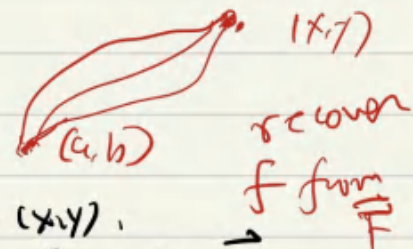 (x,y)
(a,b)
recover
f from
F
(x,y).